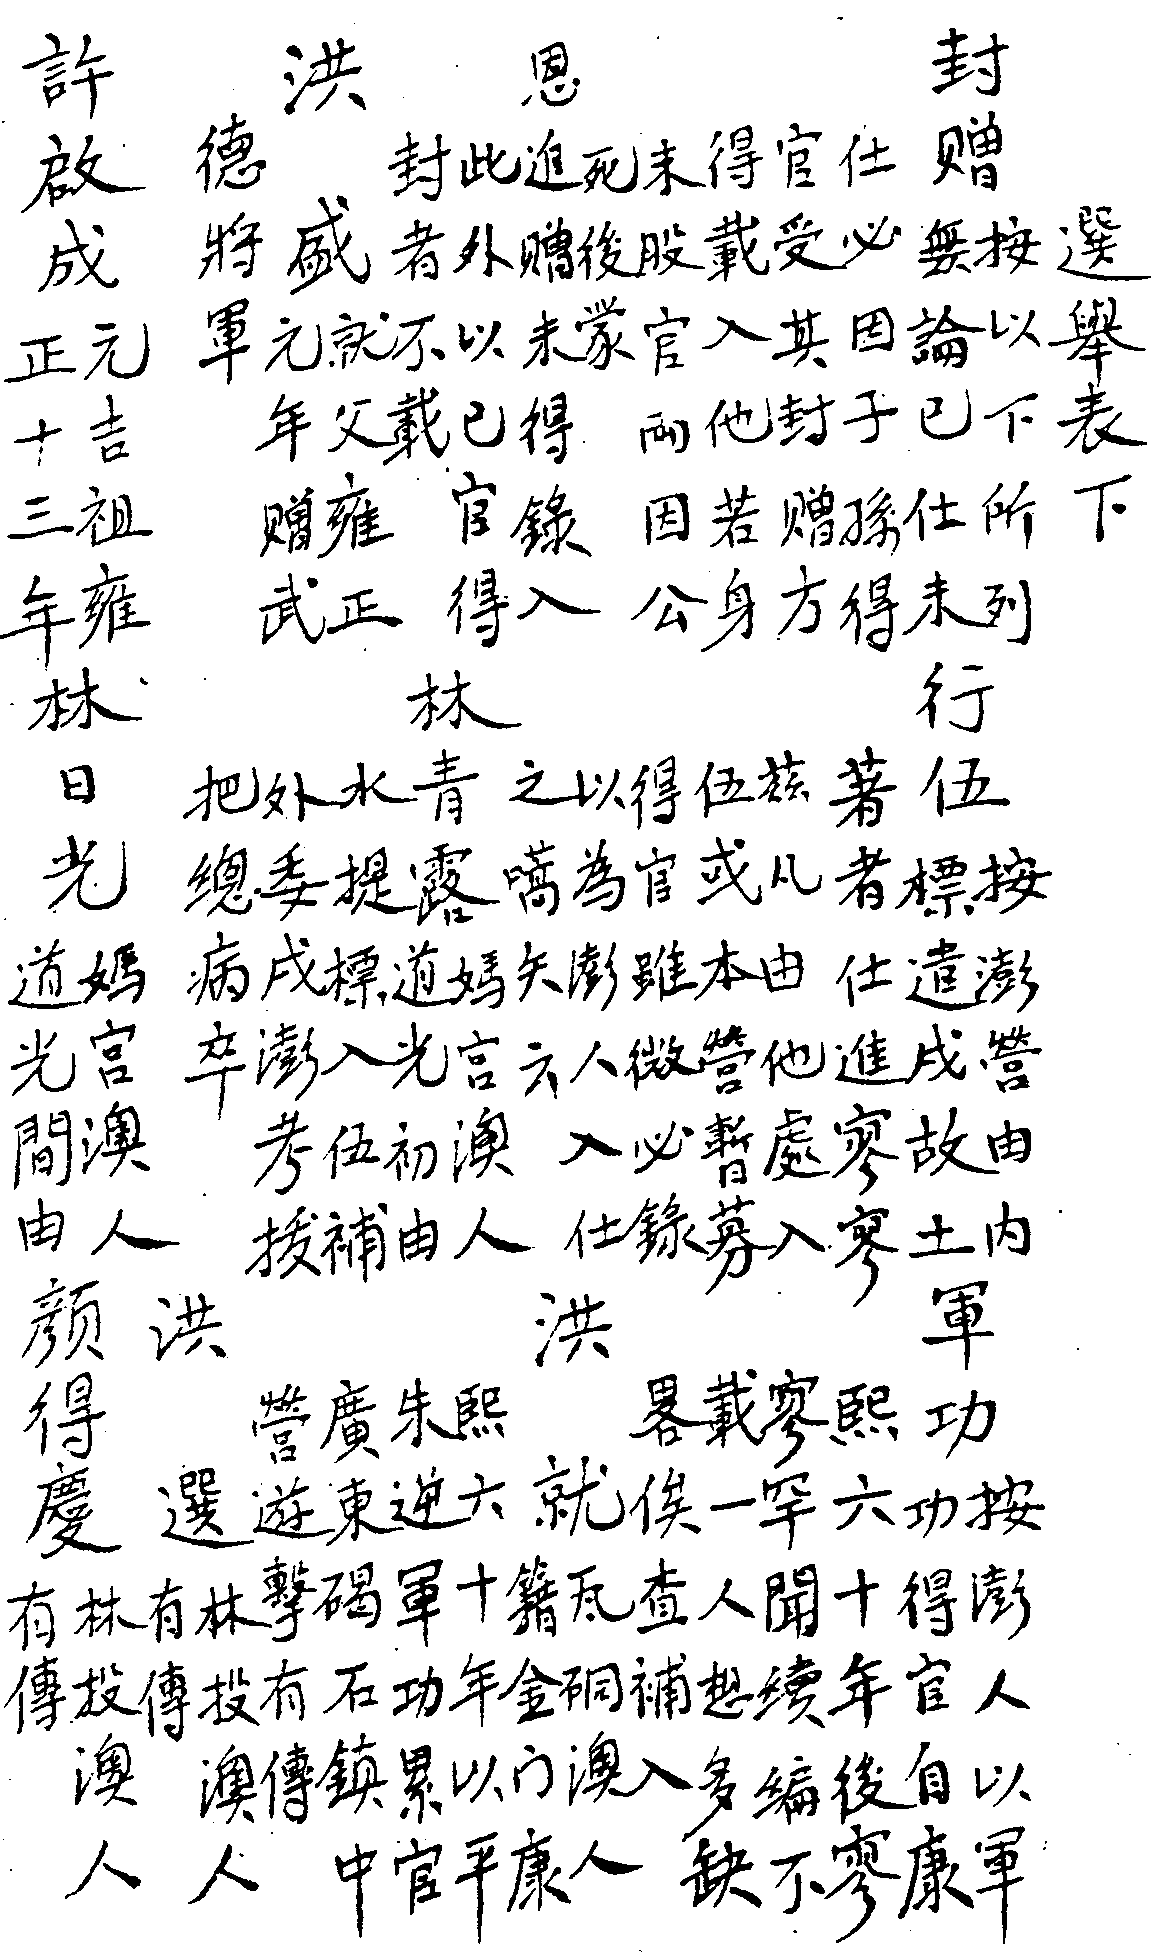 選舉表下
封贈
按以下所列
無論已仕未
仕必因子孫得
官受其封贈方
得載入他若身
未股官而因公
死後蒙
恩進贈未得錄入
此外以已官得
封者不載
洪盛
就父雍正
元年贈武
德將軍
許啟成
元吉祖雍
正十三年
行伍
按澎營由內
標遣戍故土
著者仕進寥寥
茲凡由他處入
伍或本營暫募
得官雖微必錄
以為澎人入仕
之嚆矢云
林青露
媽宮澳人
道光初由
水提標入伍補
外委戍澎考拔
把總病卒
林日光
媽宮澳人
道光間由
軍功
按澎人以軍
功得官自康
熙六十年後寥
寥罕聞續編不
載一人想多缺
畧俟查補入
洪就
瓦硐澳人
籍金门康
熙六十年以平
朱逆軍功累官
廣東碣石鎮中
營遊擊有傳
洪選
林投澳人
有傳
顏得慶
林投澳人
有傳